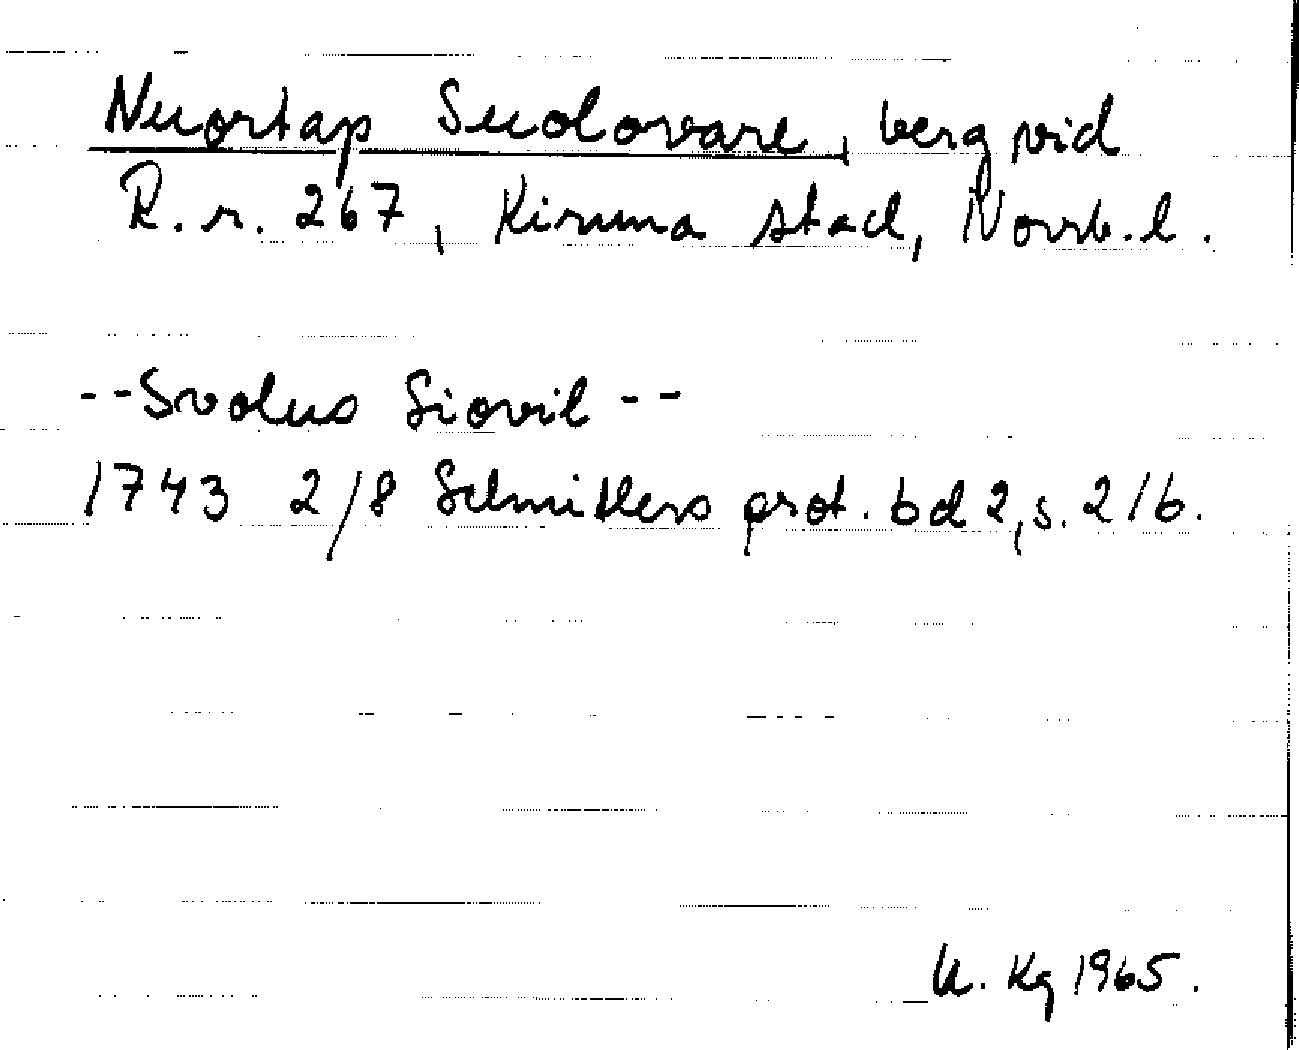 Nuortap Suolovare, berg vid
R.r. 267, Kiruna stad, Norrb.l.
--Svolus Siovil--
1743 2/8 Schnitlers prot. bd 2, s. 216.
U. Kg 1965.